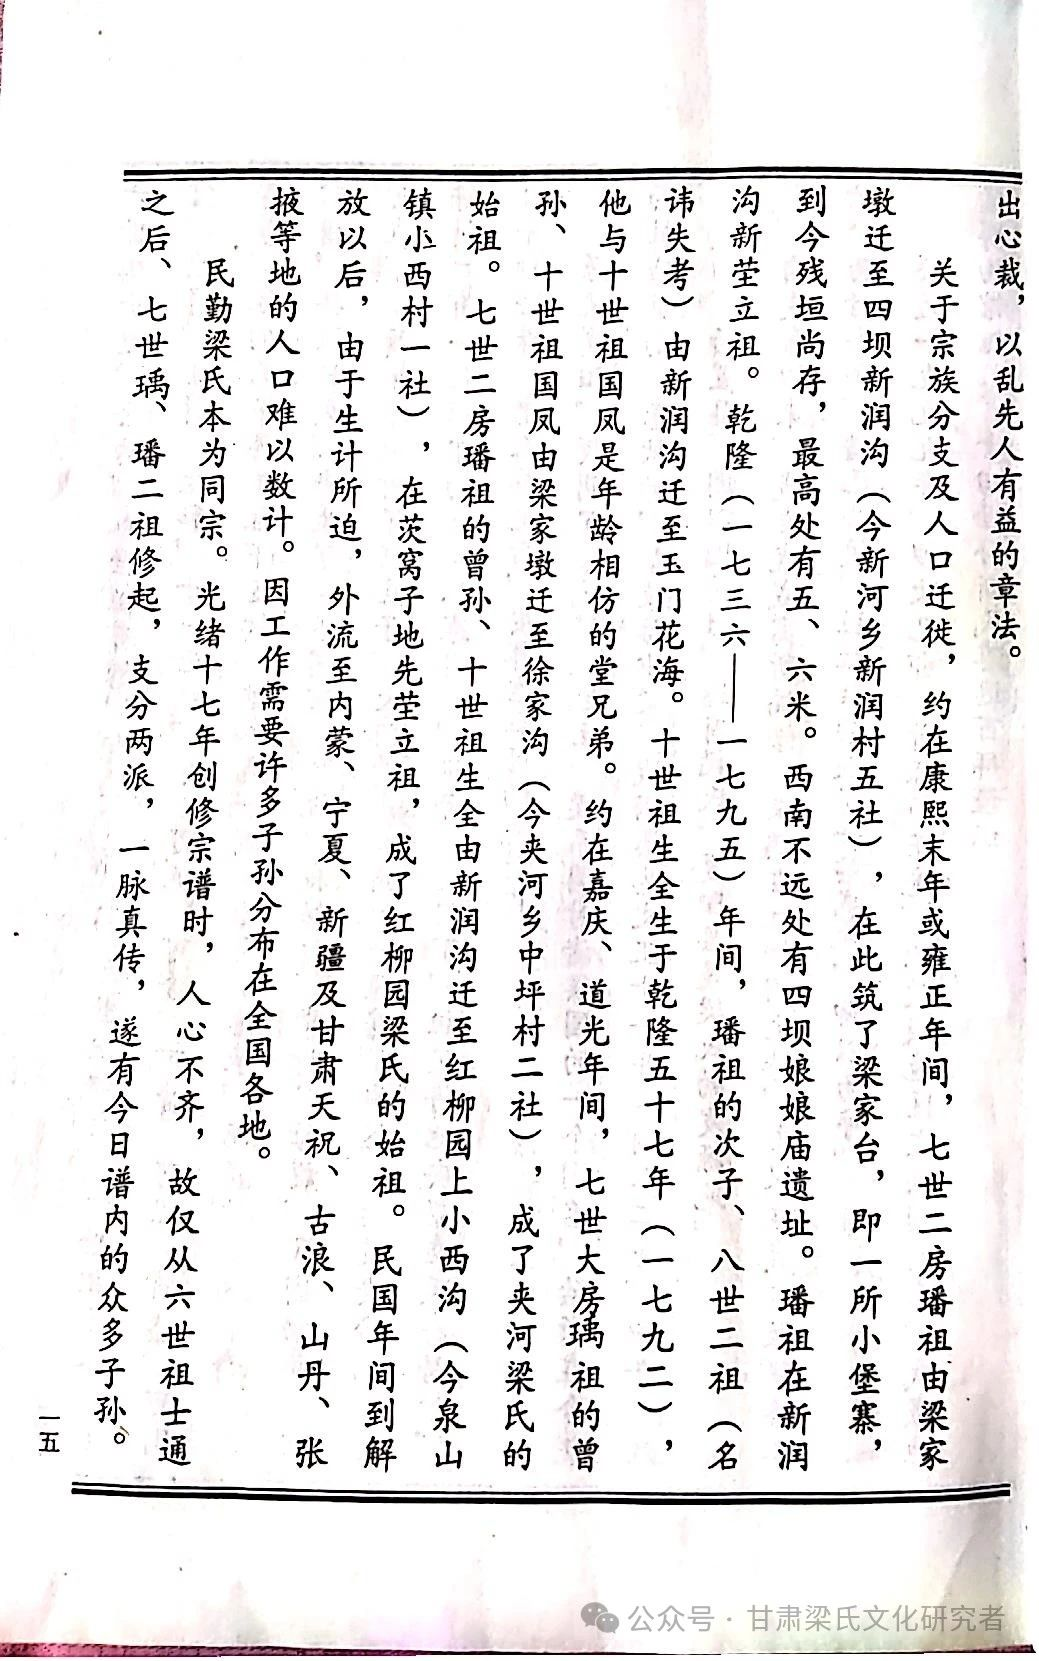 出心裁，以乱先人有益的章法。
关于宗族分支及人口迁徙，约在康熙末年或雍正年间，七世二房璠祖由梁家
墩迁至四坝新润沟（今新河乡新润村五社），在此筑了梁家台，即一所小堡寨，
到今残垣尚存，最高处有五、六米。西南不远处有四坝娘娘庙遗址。璠祖在新润
沟新茔立祖。乾隆（一七三六——一七九五）年间，璠祖的次子、八世二祖（名
讳失考）由新润沟迁至玉门花海。十世祖生全生于乾隆五十七年（一七九二），
他与十世祖国凤是年龄相仿的堂兄弟。约在嘉庆、道光年间，七世大房瑀祖的曾
孙、十世祖国凤由梁家墩迁至徐家沟（今夹河乡中坪村二社），成了夹河梁氏的
始祖。七世二房璠祖的曾孙、十世祖生全由新润沟迁至红柳园上小西沟（今泉山
镇小西村一社），在茨窝子地先茔立祖，成了红柳园梁氏的始祖。民国年间到解
放以后，由于生计所迫，外流至内蒙、宁夏、新疆及甘肃天祝、古浪、山丹、张
掖等地的人口难以数计。因工作需要许多子孙分布在全国各地。
民勤梁氏本为同宗。光绪十七年创修宗谱时，人心不齐，故仅从六世祖士通
之后、七世瑀、璠二祖修起，支分两派，一脉真传，遂有今日谱内的众多子孙。
一五
公众号·甘肃梁氏文化研究者